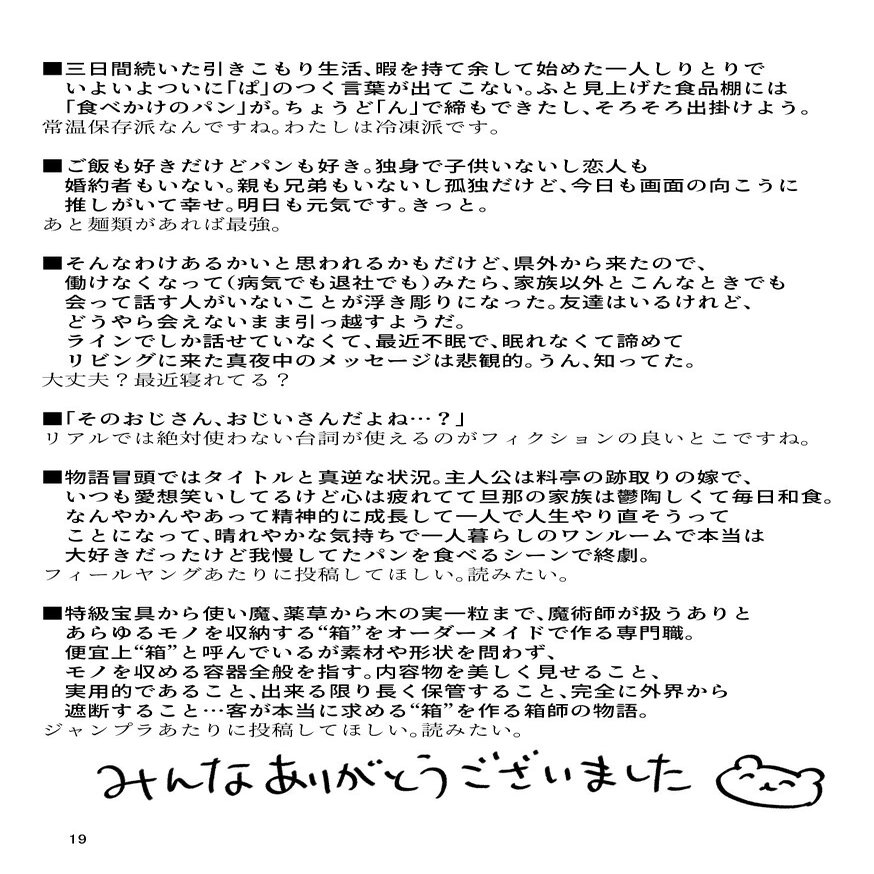 ■三日間続いた引きこもり生活、暇を持て余して始めた一人しりとりで
いよいよついに「ぱ」のつく言葉が出てこない。ふと見上げた食品棚には
「食べかけのパン」が。ちょうど「ん」で締もできたし、そろそろ出掛けよう。
常温保存派なんですね。わたしは冷凍派です。
■ご飯も好きだけどパンも好き。独身で子供いないし恋人も
婚約者もいない。親も兄弟もいないし孤独だけど、今日も画面の向こうに
推しがいて幸せ。明日も元気です。きっと。
あと麺類があれば最強。
■そんなわけあるかいと思われるかもだけど、県外から来たので、
働けなくなって(病気でも退社でも)みたら、家族以外とこんなときでも
会って話す人がいないことが浮き彫りになった。友達はいるけれど、
どうやら会えないまま引っ越すようだ。
ラインでしか話せていなくて、最近不眠で、眠れなくて諦めて
リビングに来た真夜中のメッセージは悲観的。うん、知ってた。
大丈夫？最近寝れてる？
■「そのおじさん、おじいさんだよね…？」
リアルでは絶対使わない台詞が使えるのがフィクションの良いとこですね。
■物語冒頭ではタイトルと真逆な状況。主人公は料亭の跡取りの嫁で、
いつも愛想笑いしてるけど心は疲れてて旦那の家族は鬱陶しくて毎日和食。
なんやかんやあって精神的に成長して一人で人生やり直そうって
ことになって、晴れやかな気持ちで一人暮らしのワンルームで本当は
大好きだったけど我慢してたパンを食べるシーンで終劇。
フィールヤングあたりに投稿してほしい。読みたい。
■特級宝具から使い魔、薬草から木の実一粒まで、魔術師が扱うありと
あらゆるモノを収納する“箱”をオーダーメイドで作る専門職。
便宜上“箱”と呼んでいるが素材や形状を問わず、
モノを収める容器全般を指す。内容物を美しく見せること、
実用的であること、出来る限り長く保管すること、完全に外界から
遮断すること…客が本当に求める“箱”を作る箱師の物語。
ジャンプラあたりに投稿してほしい。読みたい。
みんなありがとうございました
19